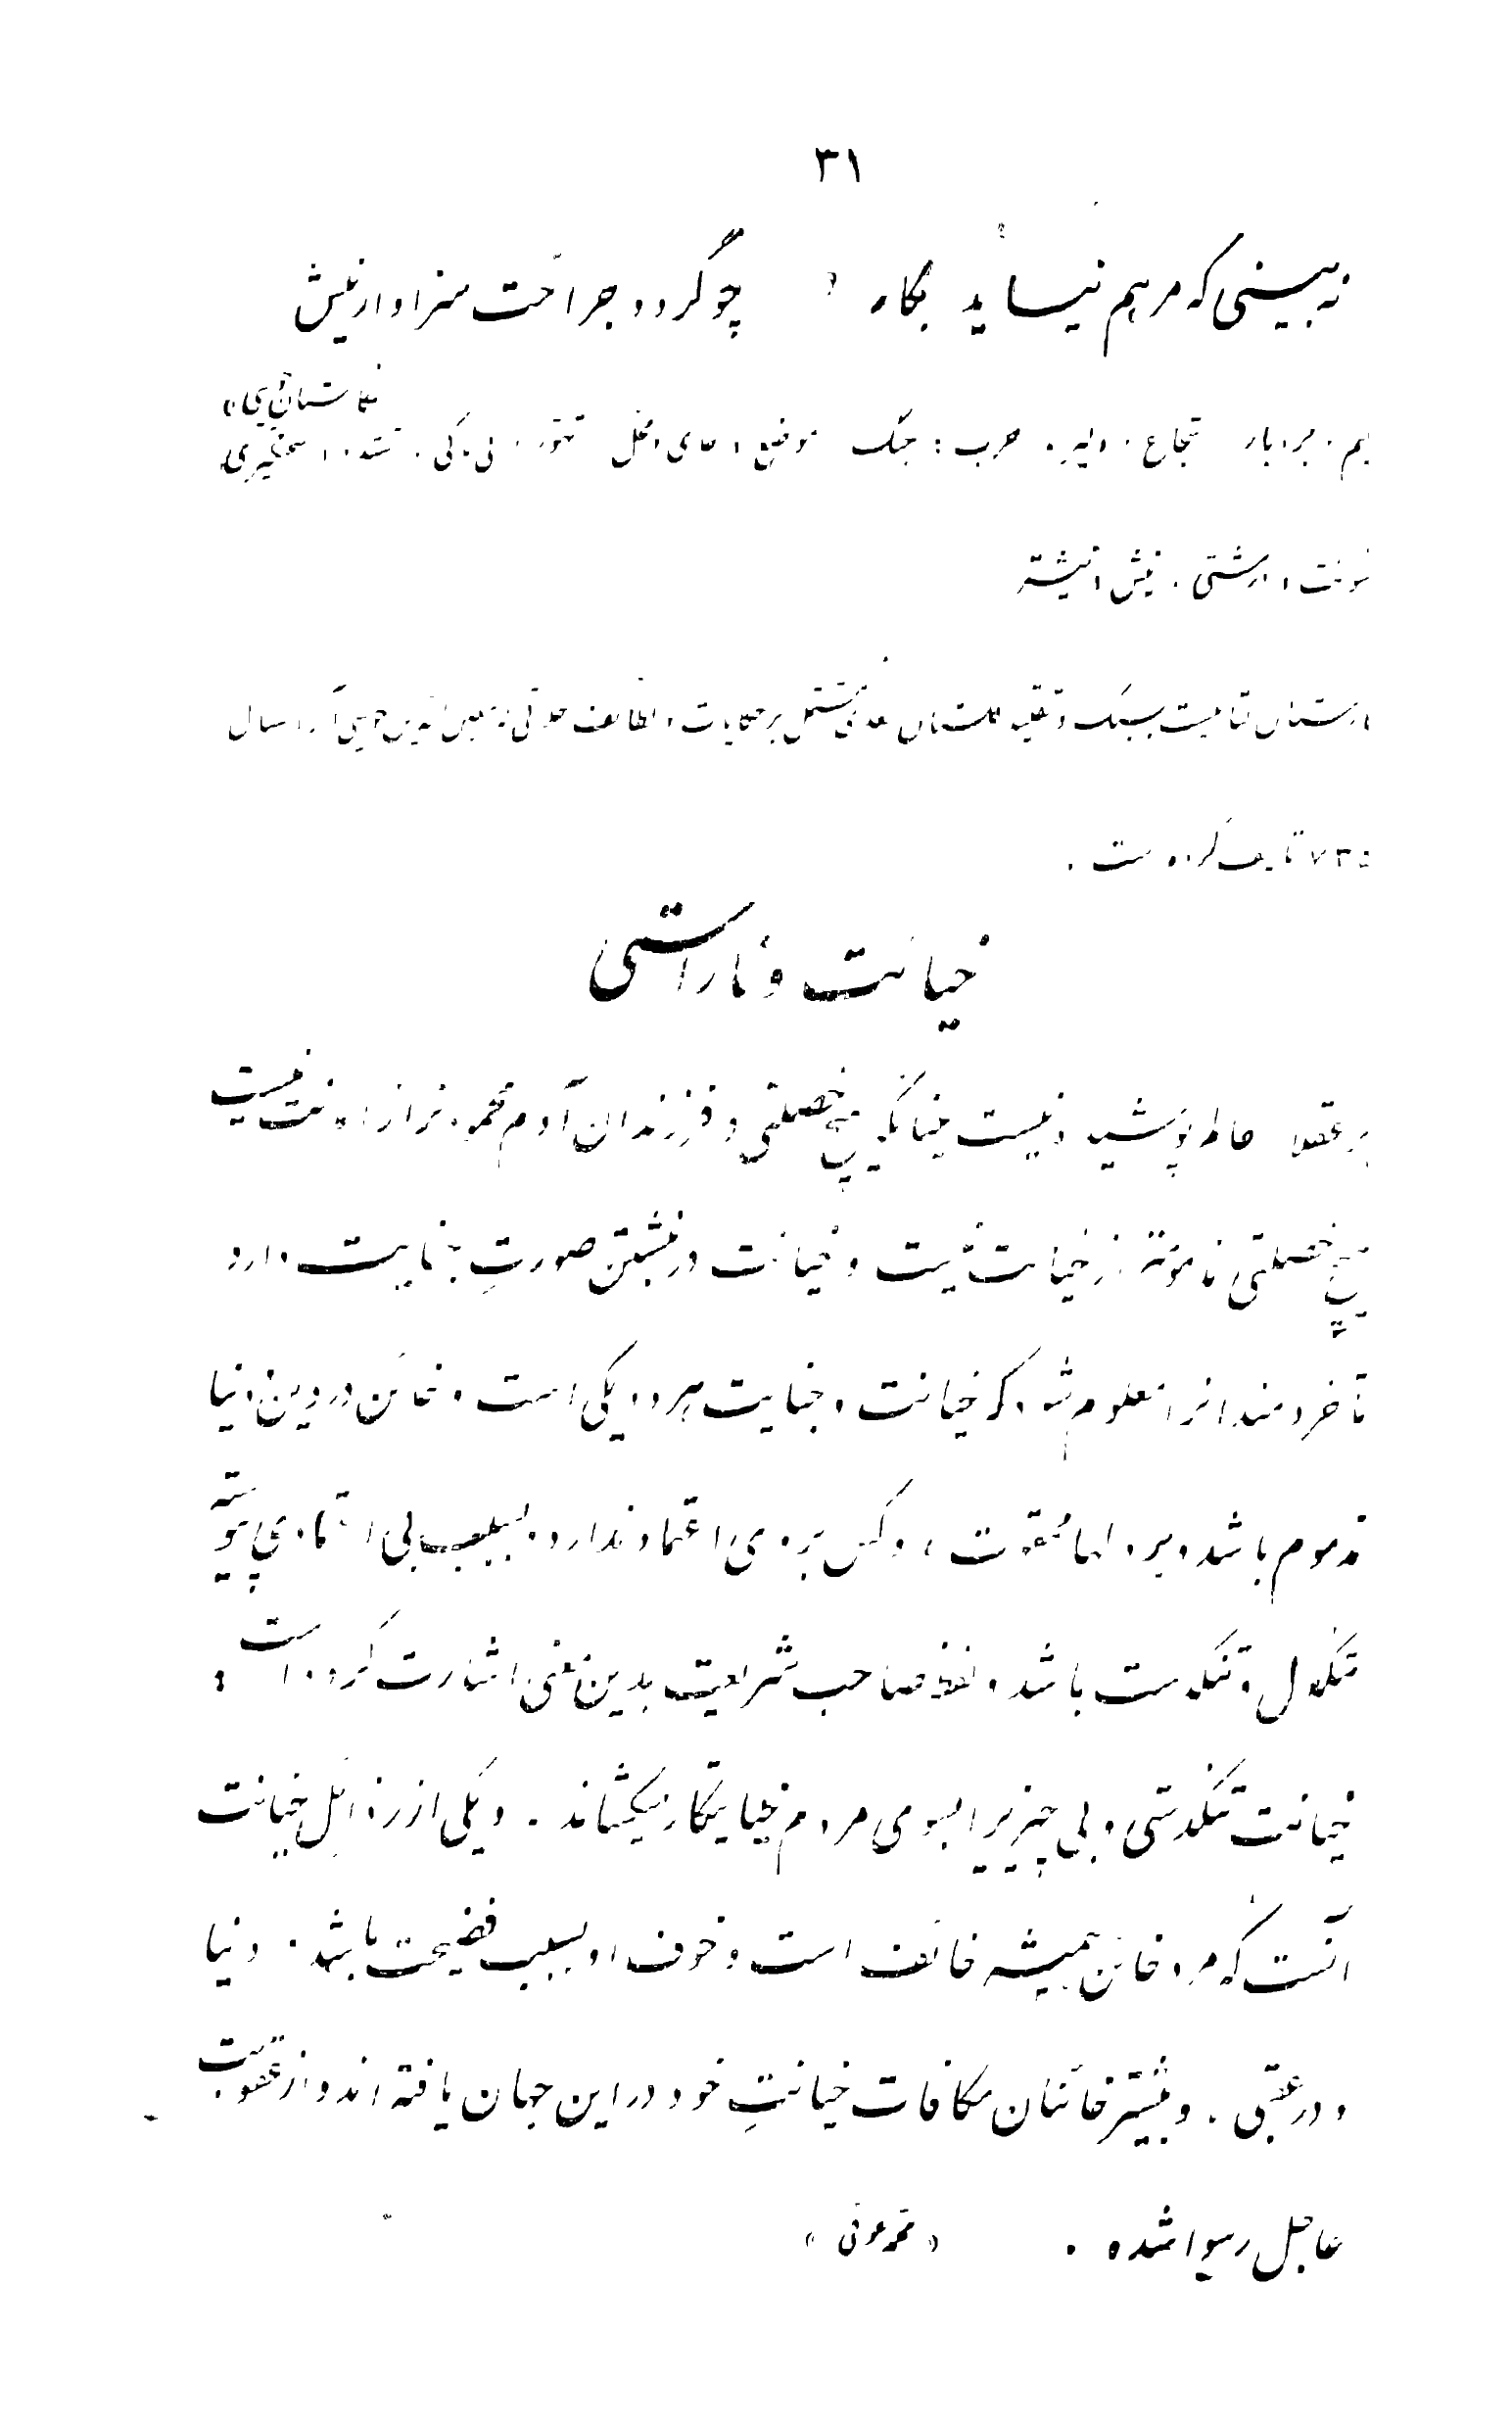 ۳۱
نه بینی که مرهم نیاید بکار چو گردد جراحت سزاوار نیش
«نگارستان جوینی»
بردبار شجاع: دلیر. حرب: جنگ موضع: جای تهور: بی‌باکی.
خشونت: درشتی. نیش: نیشتر
کتابیست بسبک و تقلید گلستان سعدی مشتمل بر حکایات و لطائف معین‌الدین جوینی آنرا سال
۷۳۵ تألیف کرده است.
خیانت و ناراستی
بر عقلا پوشیده نیست چنانکه هیچ خصلتی در فرزندان آدم محمودتر از امانت نیست
هیچ خصلتی از خیانت نیست و خیانت در نبشتن صورتِ جنایت دارد
تا خردمندانرا معلوم شود که خیانت و جنایت هر دو یکی است و خائن در دین و دنیا
مذموم باشد و بر دلها ممقوت، و کس بر وی اعتماد ندارد و بسبب بی اعتمادی پیوسته
و تنگدست باشد و لفظ صاحب شریعت بدین معنی اشارت کرده است:
خیانت تنگدستی و بی چیزیرا بسوی مردم خیانتکار میکشاند. و یکی از رذائل خیانت
آنست که مرد خائن همیشه خائف است و خوف او بسبب فضیحت باشد در دنیا
و در عقبی. و بیشتر خائنان مکافات خیانتِ خود در این جهان یافته‌اند و از عقوبت
عاجل رسوا شده. «محمد عوفی»